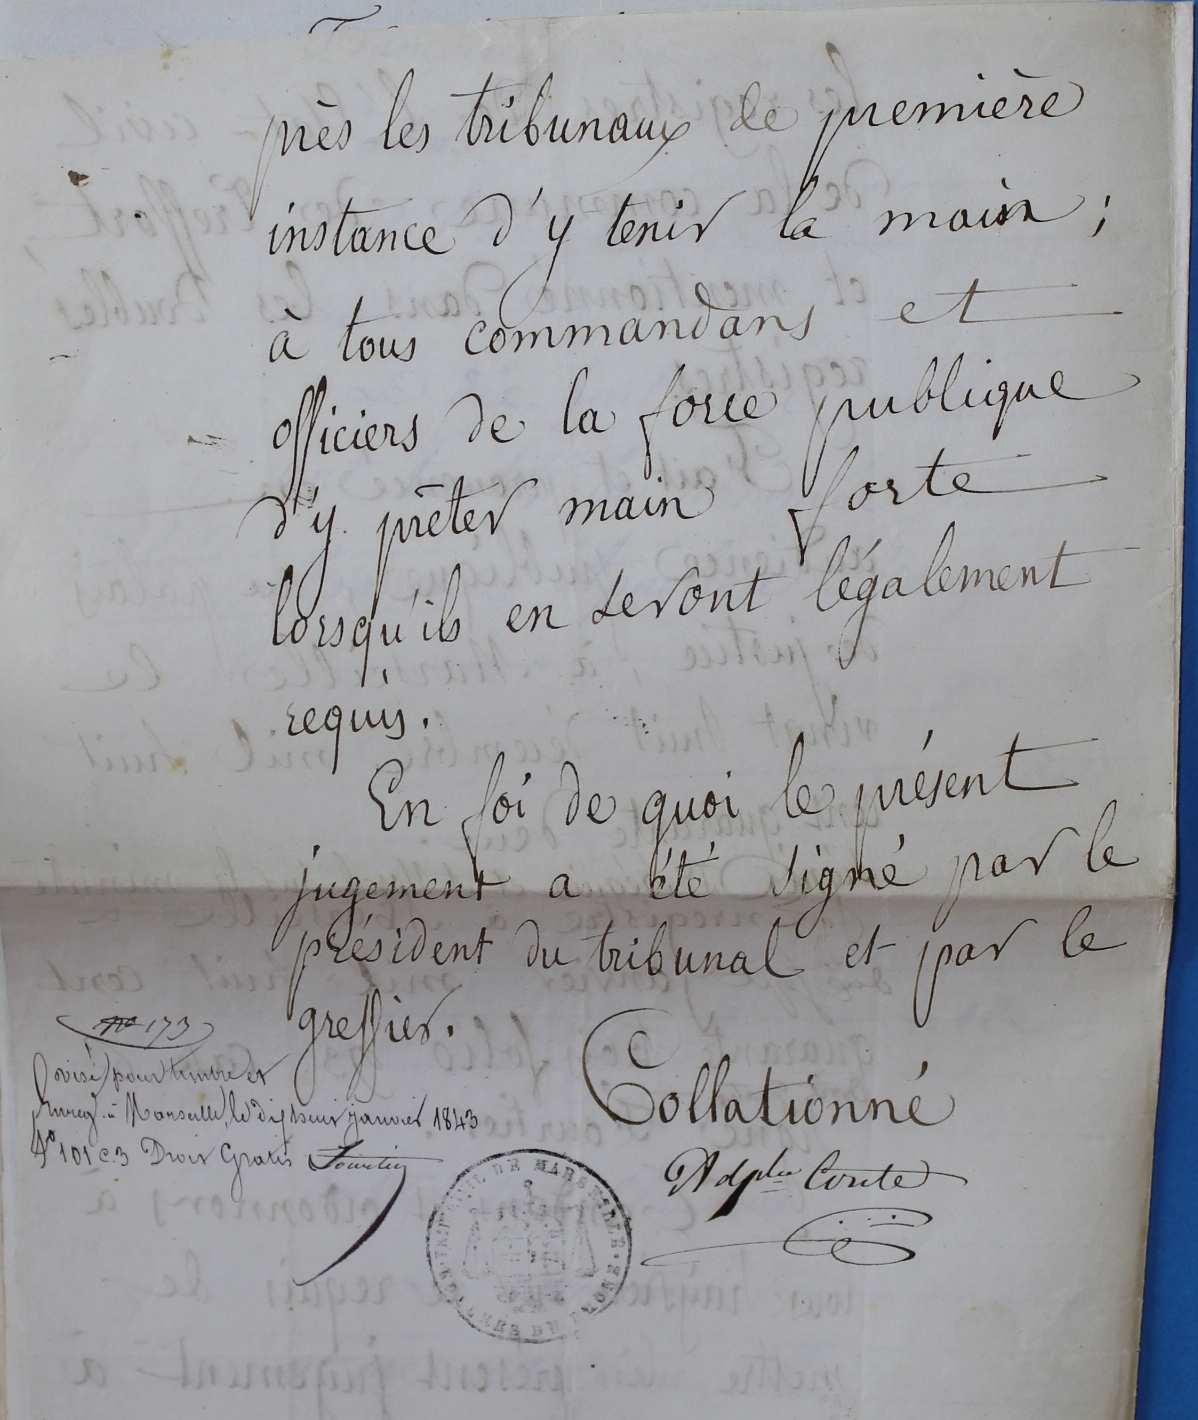 près les tribunaux de première
instance d'y tenir la main ;
à tous commandans et
officiers de la force publique
d'y prêter main forte
lorsqu'ils en seront légalement
requis.
En foi de quoi le présent
jugement a été signé par le
président du tribunal et par le
greffier.
Collationné
n° 173
visé pour timbre et
Enreg. à Marseille, le dix neuf janvier 1843
f° 101 c. 3 Droit Gratis
Adphe Conte
TRIBUNAL CIVIL DE MARSEILLE
BOUCHES DU RHONE